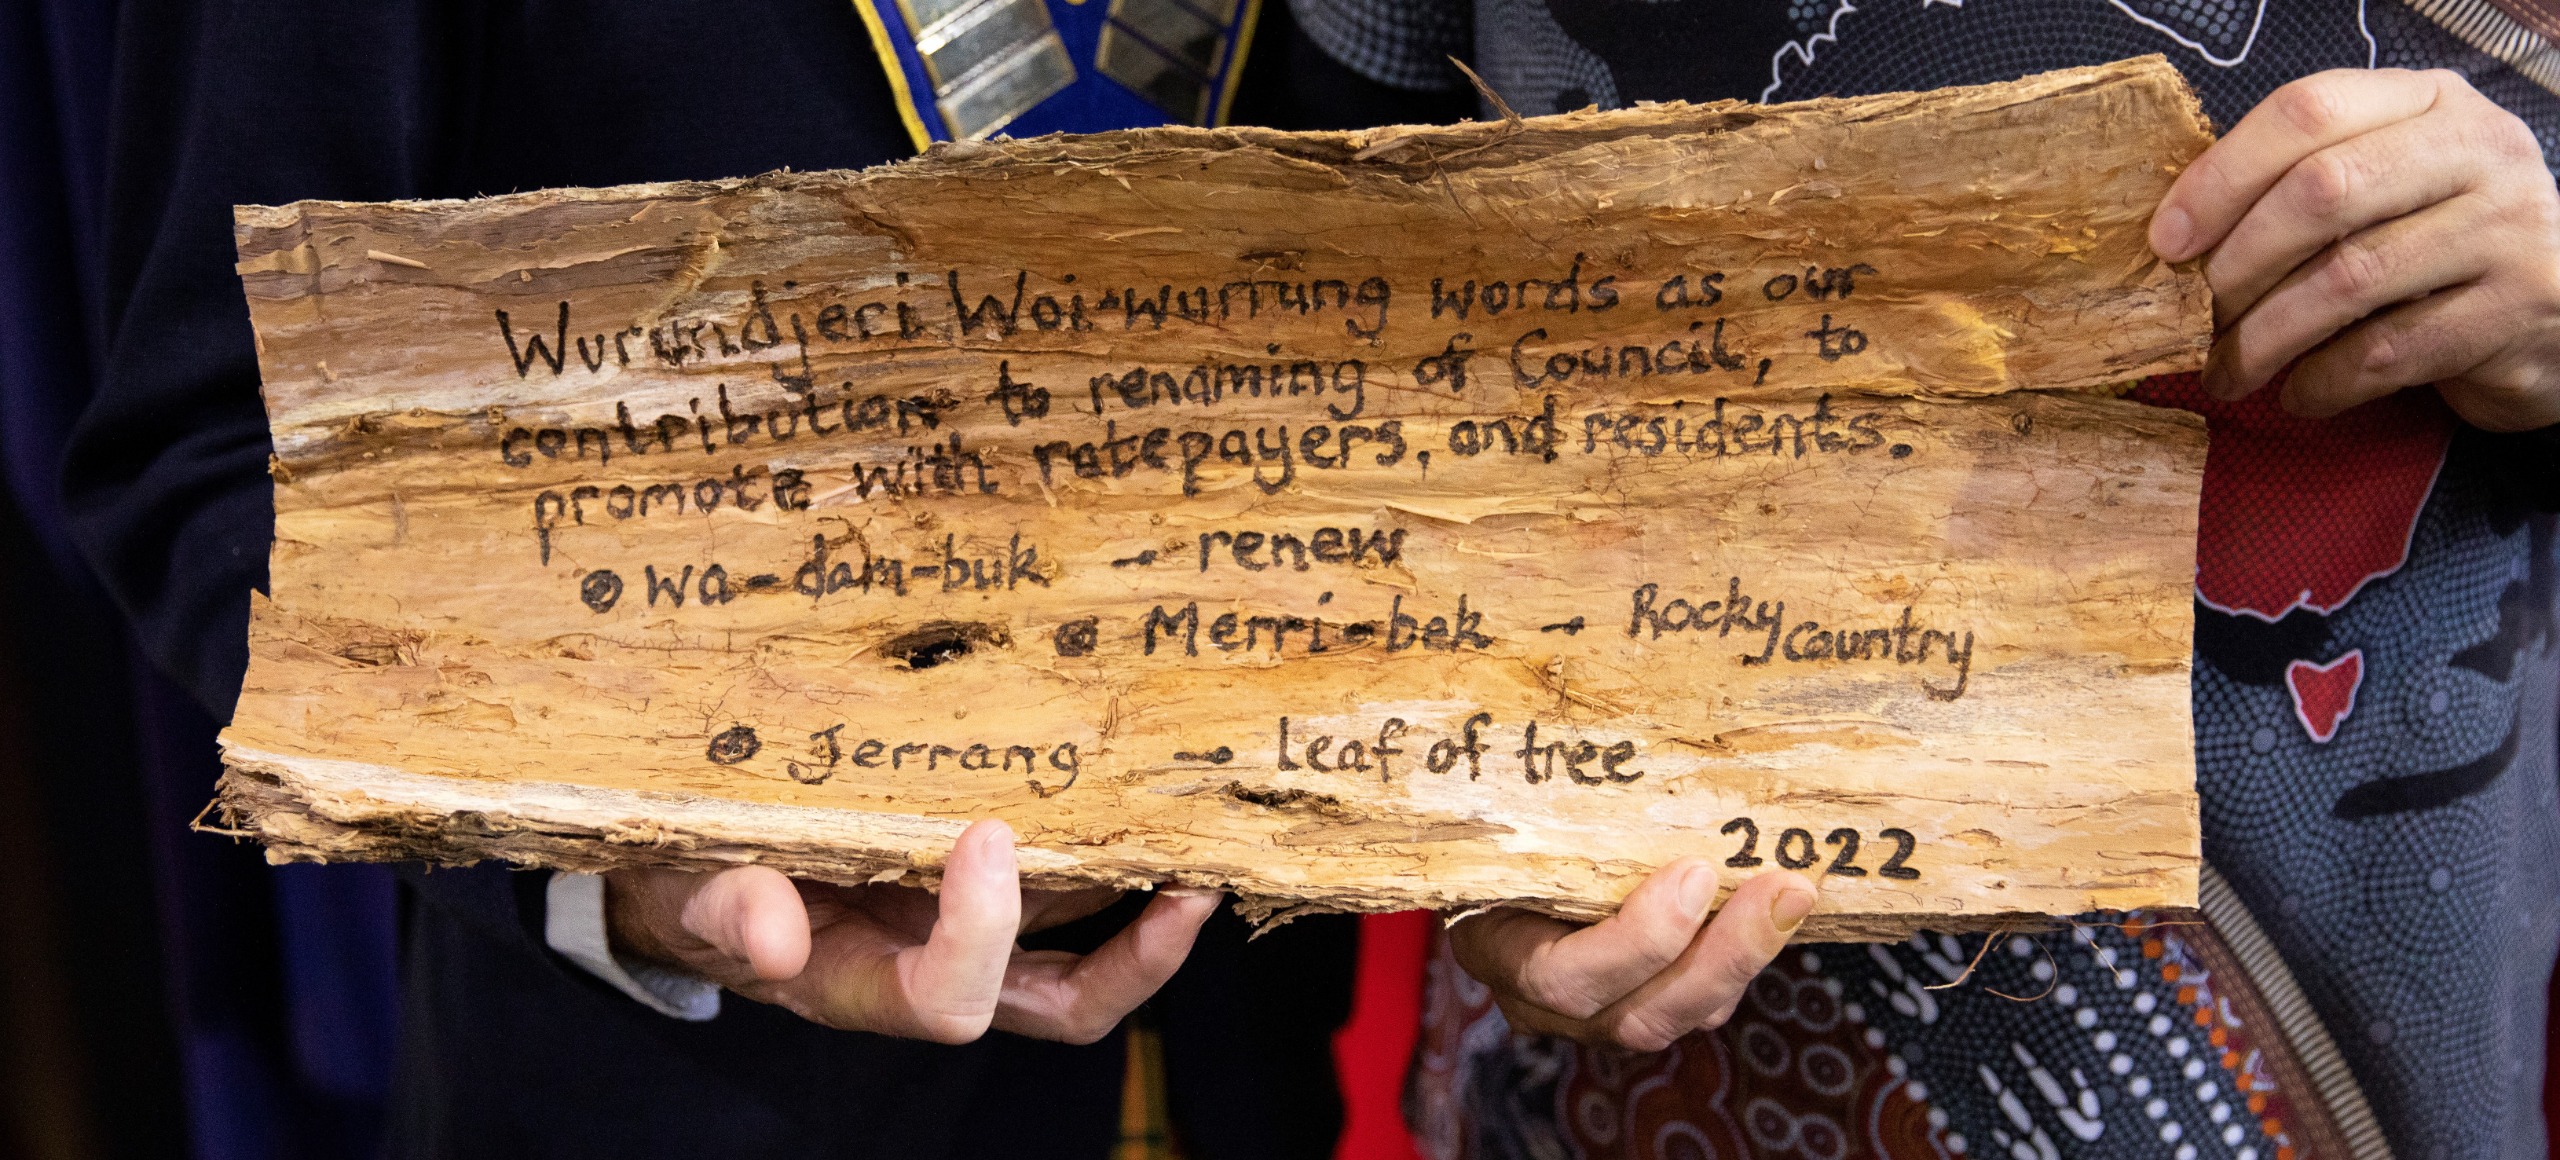 Wurundjeri Woi-wurrung words as our
contribution to renaming of Council, to
promote with ratepayers, and residents.
wa-dam-buk - renew
Merri-bek - Rocky country
Jerrang - leaf of tree
2022